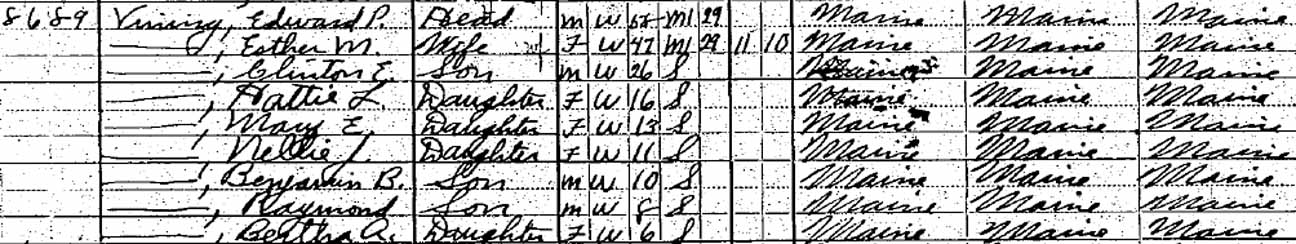 86 89 Vining, Edward P. Head M W 52 M1 29 Maine Maine Maine
——, Esther M. Wife F W 47 M1 29 11 10 Maine Maine Maine
——, Clinton E. Son M W 26 S Maine Maine Maine
——, Hattie L. Daughter F W 16 S Maine Maine Maine
——, Mary E. Daughter F W 13 S Maine Maine Maine
——, Nellie Daughter F W 11 S Maine Maine Maine
——, Benjamin B. Son M W 10 S Maine Maine Maine
——, Raymond Son M W 8 S Maine Maine Maine
——, Bertha A. Daughter F W 6 S Maine Maine Maine